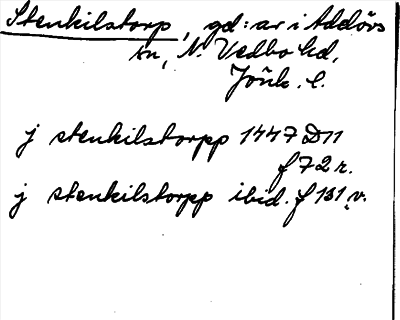 Stenkilstorp, gd:ar i Addövs
sn, N. Vedbo hd,
Jönk. l.
j stenkilstorpp 1447 D11
f 72 r.
j stenkilstorpp ibid. f 131 v.